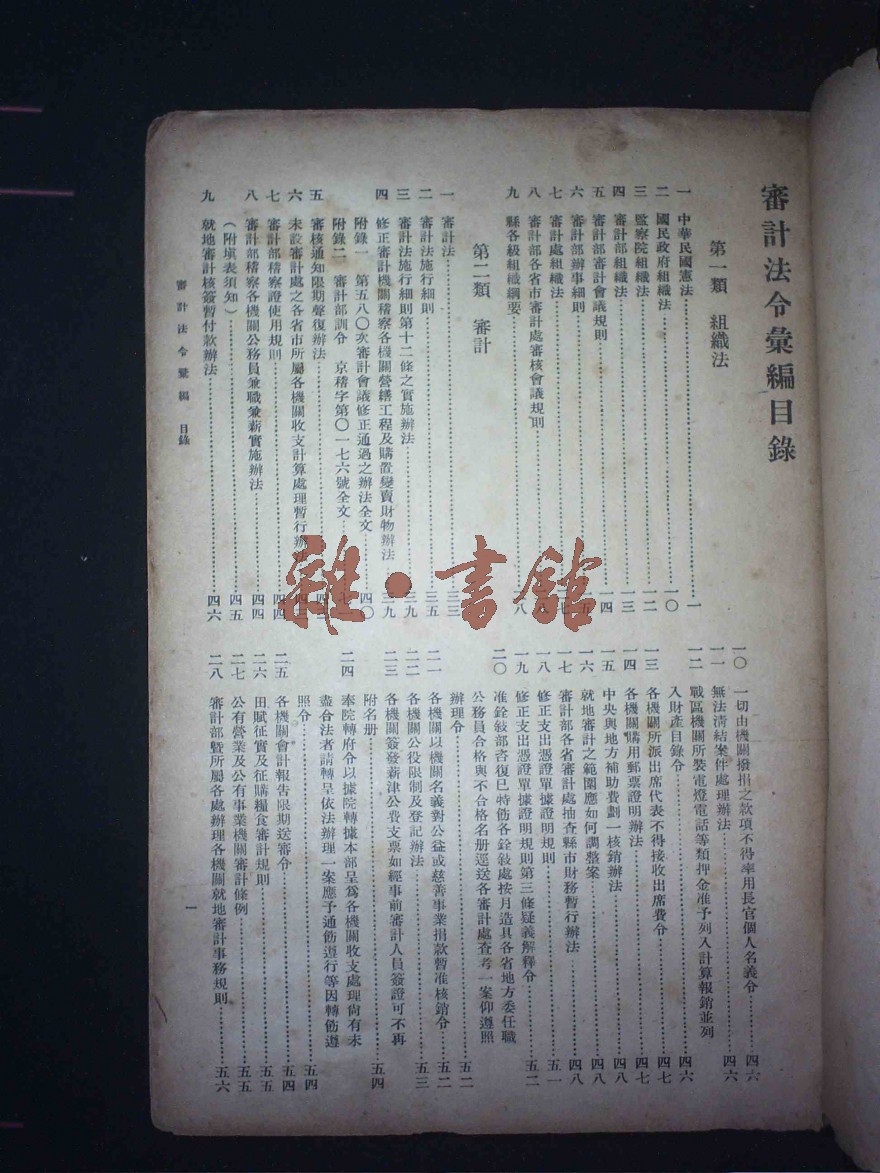 審計法令彙編目錄
第一類 組織法
一 中華民國憲法……一
二 國民政府組織法……一〇
三 監察院組織法……一二
四 審計部組織法……一三
五 審計部審計會議規則……一四
六 審計部辦事細則……一五
七 審計處組織法……
八 審計部各省市審計處審核會議規則……
九 縣各級組織綱要……二八
第二類 審計
一 審計法……三三
二 審計法施行細則……三五
三 審計法施行細則第十二條之實施辦法……三九
四 修正審計機關稽察各機關營繕工程及購置變賣財物辦法……三九
附錄一 第五八〇次審計會議修正通過之辦法全文……四〇
附錄二 審計部訓令 京稽字第〇一七六號全文……
五 審核通知限期聲復辦法……
六 未設審計處之各省市所屬各機關收支計算處理暫行辦法……
七 審計部稽察證使用規則……四四
八 審計部稽察各機關公務員兼職兼薪實施辦法……四四
（附填表須知）……四五
九 就地審計核簽暫付款辦法……四六
一〇 一切由機關撥捐之款項不得率用長官個人名義令……四六
一一 無法清結案件處理辦法……四六
一二 戰區機關所裝電燈電話等類押金准予列入計算報銷並列
入財產目錄令……四六
一三 各機關所派出席代表不得接收出席費令……四七
一四 各機關購用郵票證明辦法……四七
一五 中央與地方補助費劃一核銷辦法……四八
一六 就地審計之範圍應如何調整案……四八
一七 審計部各省審計處抽查縣市財務暫行辦法……四八
一八 修正支出憑證單據證明規則……五一
一九 修正支出憑證單據證明規則第三條疑義解釋令……五二
二〇 准銓敍部咨復已特飭各銓敍處按月造具各省地方委任職
公務員合格與不合格名册逕送各審計處查考一案仰遵照
辦理令……五二
二一 各機關以機關名義對公益或慈善事業捐款暫准核銷令……五二
二二 各機關公役限制及登記辦法……五三
二三 各機關簽發薪津公費支票如經事前審計人員簽證可不再
附名册……五四
二四 奉院轉府令以據院轉據本部呈爲各機關收支處理尙有未
盡合法者請轉呈依法辦理一案應予通飭遵行等因轉飭遵
照令……五四
二五 各機關會計報告限期送審令……五四
二六 田賦征實及征購糧食審計規則……五五
二七 公有營業及公有事業機關審計條例……五五
二八 審計部暨所屬各處辦理各機關就地審計事務規則……五六
審計法令彙編 目錄
一
雜·書館